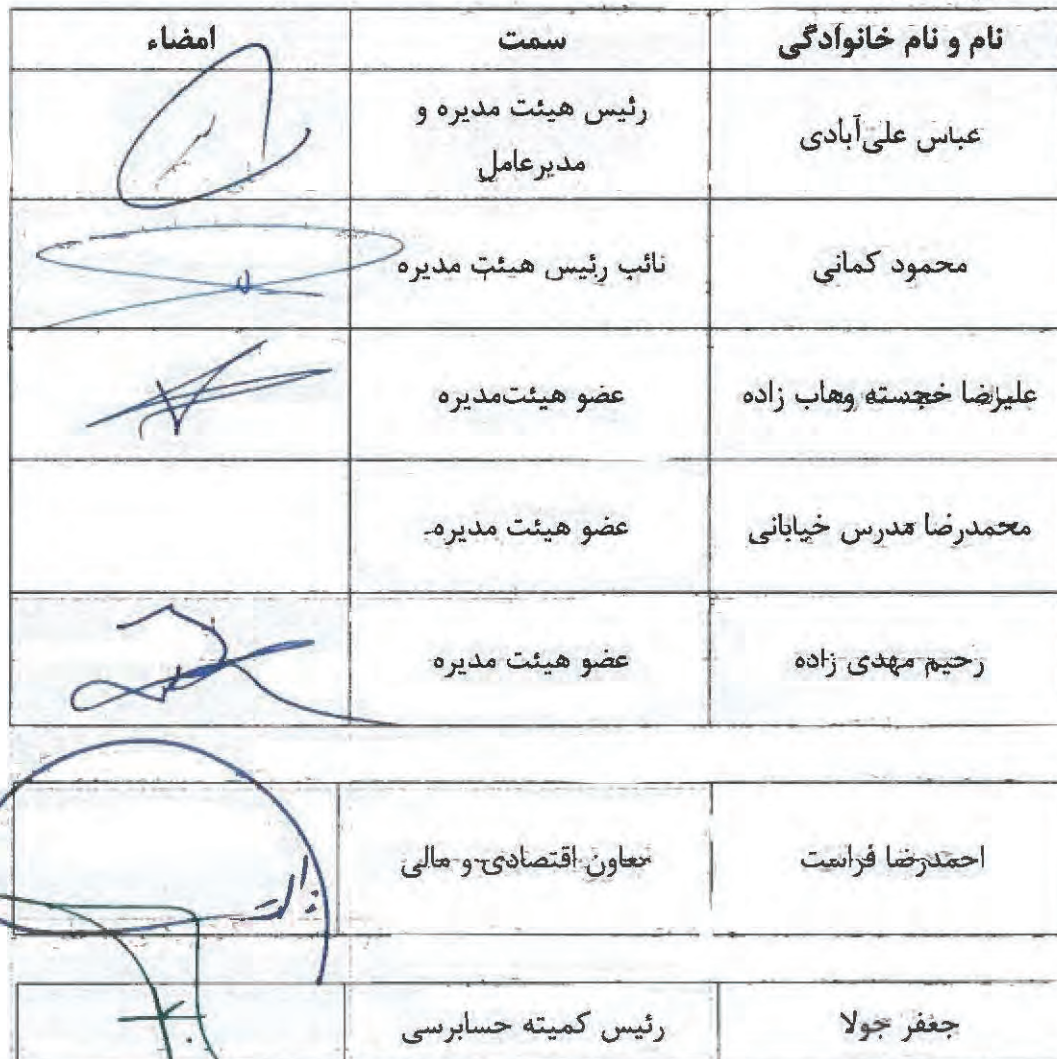 نام و نام خانوادگی سمت امضاء
عباس علی‌آبادی رئیس هیئت مدیره و
مدیرعامل
محمود کمانی نائب رئیس هیئت مدیره
علیرضا خجسته وهاب زاده عضو هیئت‌مدیره
محمدرضا مدرس خیابانی عضو هیئت مدیره
رحیم مهدی زاده عضو هیئت مدیره
احمدرضا فراست معاون اقتصادی و مالی
جعفر جولا رئیس کمیته حسابرسی